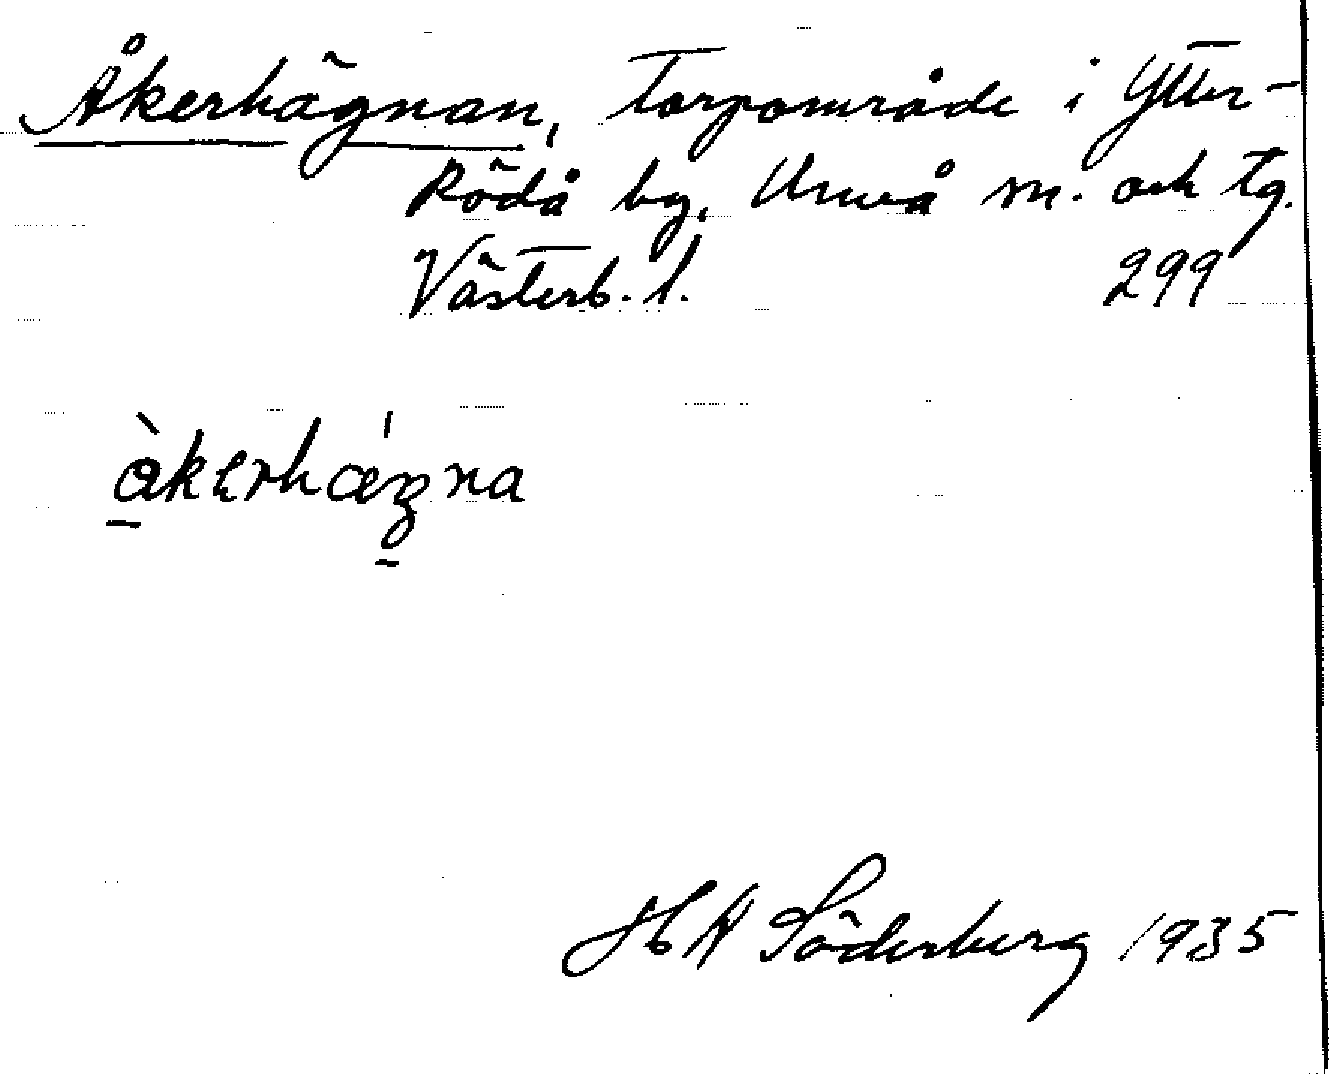 Åkerhägnan, torpområde i Ytter-
Rödå by, Umeå m. och tg.
Västerb. l. 299
àkerhægna
H A Söderberg 1935